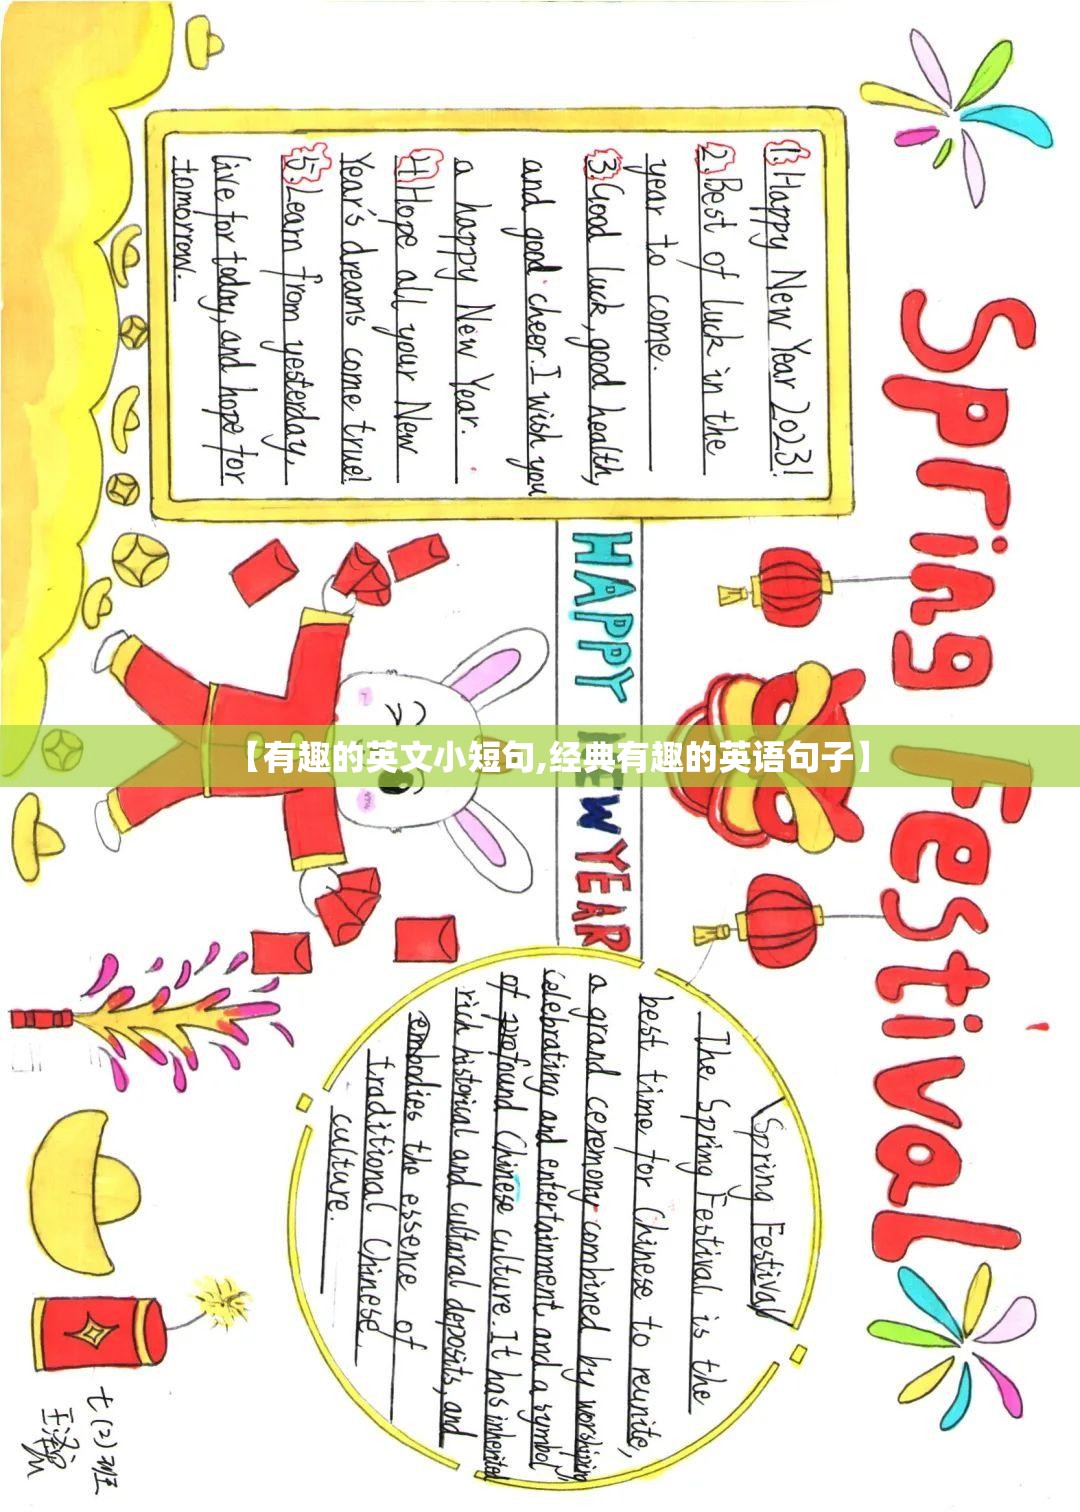 Spring Festival
1. Happy New Year 2023!
2. Best of luck in the
year to come.
3. Good luck, good health,
and good cheer. I wish you
a happy New Year.
4. Hope all your New
Year's dreams come true!
5. Learn from yesterday,
live for today, and hope for
tomorrow.
HAPPY NEW YEAR
【有趣的英文小短句,经典有趣的英语句子】
Spring Festival
The Spring Festival is the
best time for Chinese to reunite,
a grand ceremony combined by worshiping,
celebrating and entertainment, and a symbol
of profound Chinese culture. It has inherited
rich historical and cultural deposits, and
embodies the essence of
traditional Chinese
culture.
七(2)班